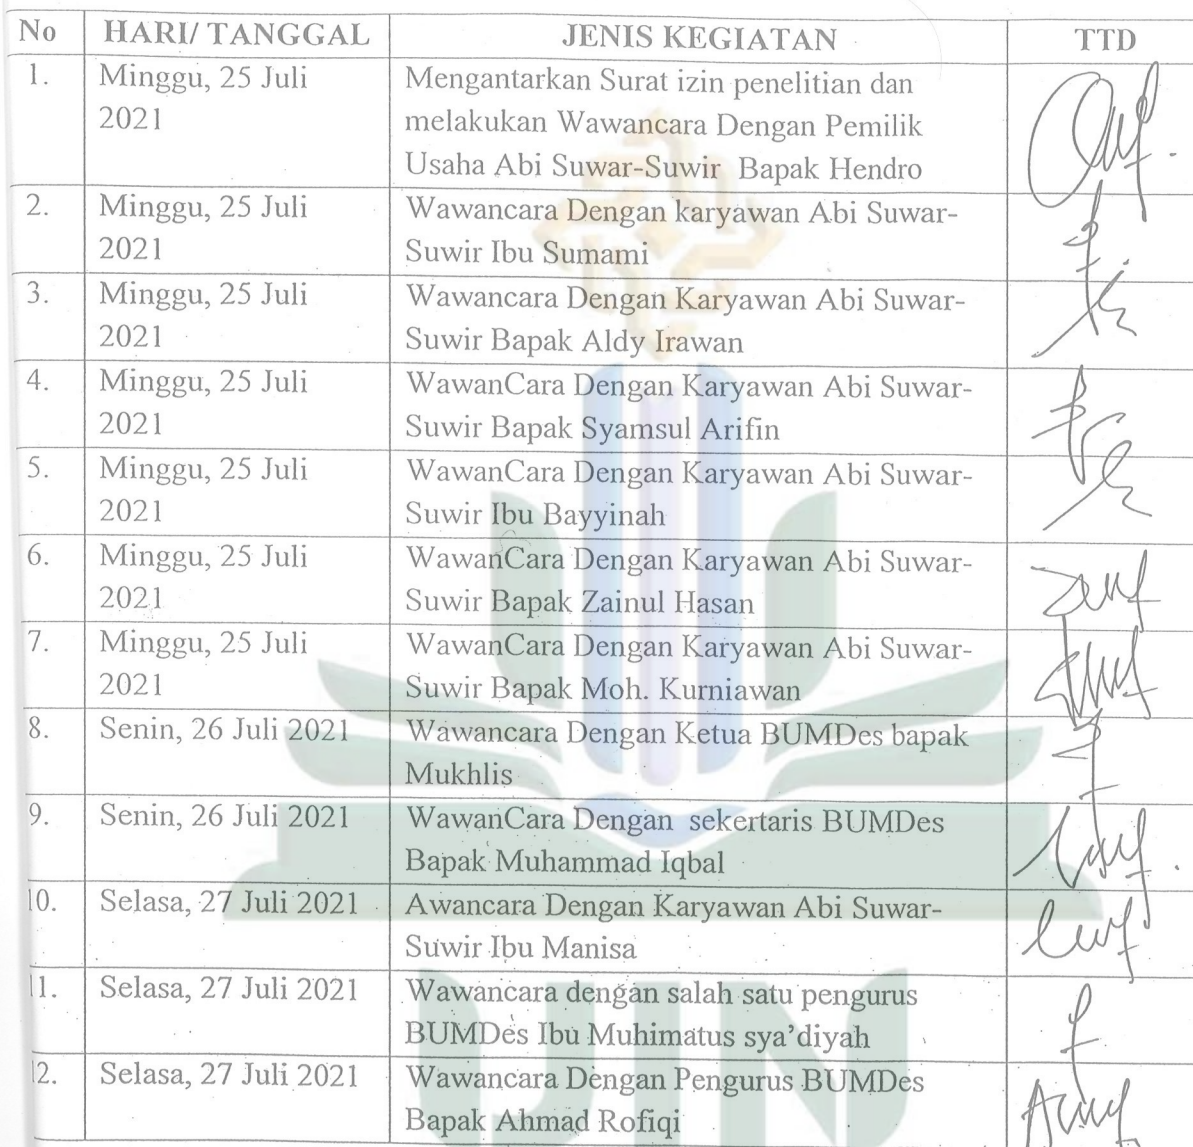 No HARI/ TANGGAL JENIS KEGIATAN TTD
1. Minggu, 25 Juli 2021 Mengantarkan Surat izin penelitian dan
melakukan Wawancara Dengan Pemilik
Usaha Abi Suwar-Suwir Bapak Hendro
2. Minggu, 25 Juli 2021 Wawancara Dengan karyawan Abi Suwar-
Suwir Ibu Sumami
3. Minggu, 25 Juli 2021 Wawancara Dengan Karyawan Abi Suwar-
Suwir Bapak Aldy Irawan
4. Minggu, 25 Juli 2021 WawanCara Dengan Karyawan Abi Suwar-
Suwir Bapak Syamsul Arifin
5. Minggu, 25 Juli 2021 WawanCara Dengan Karyawan Abi Suwar-
Suwir Ibu Bayyinah
6. Minggu, 25 Juli 2021 WawanCara Dengan Karyawan Abi Suwar-
Suwir Bapak Zainul Hasan
7. Minggu, 25 Juli 2021 WawanCara Dengan Karyawan Abi Suwar-
Suwir Bapak Moh. Kurniawan
8. Senin, 26 Juli 2021 Wawancara Dengan Ketua BUMDes bapak
Mukhlis
9. Senin, 26 Juli 2021 WawanCara Dengan sekertaris BUMDes
Bapak Muhammad Iqbal
10. Selasa, 27 Juli 2021 Awancara Dengan Karyawan Abi Suwar-
Suwir Ibu Manisa
11. Selasa, 27 Juli 2021 Wawancara dengan salah satu pengurus
BUMDes Ibu Muhimatus sya'diyah
12. Selasa, 27 Juli 2021 Wawancara Dengan Pengurus BUMDes
Bapak Ahmad Rofiqi
UIN